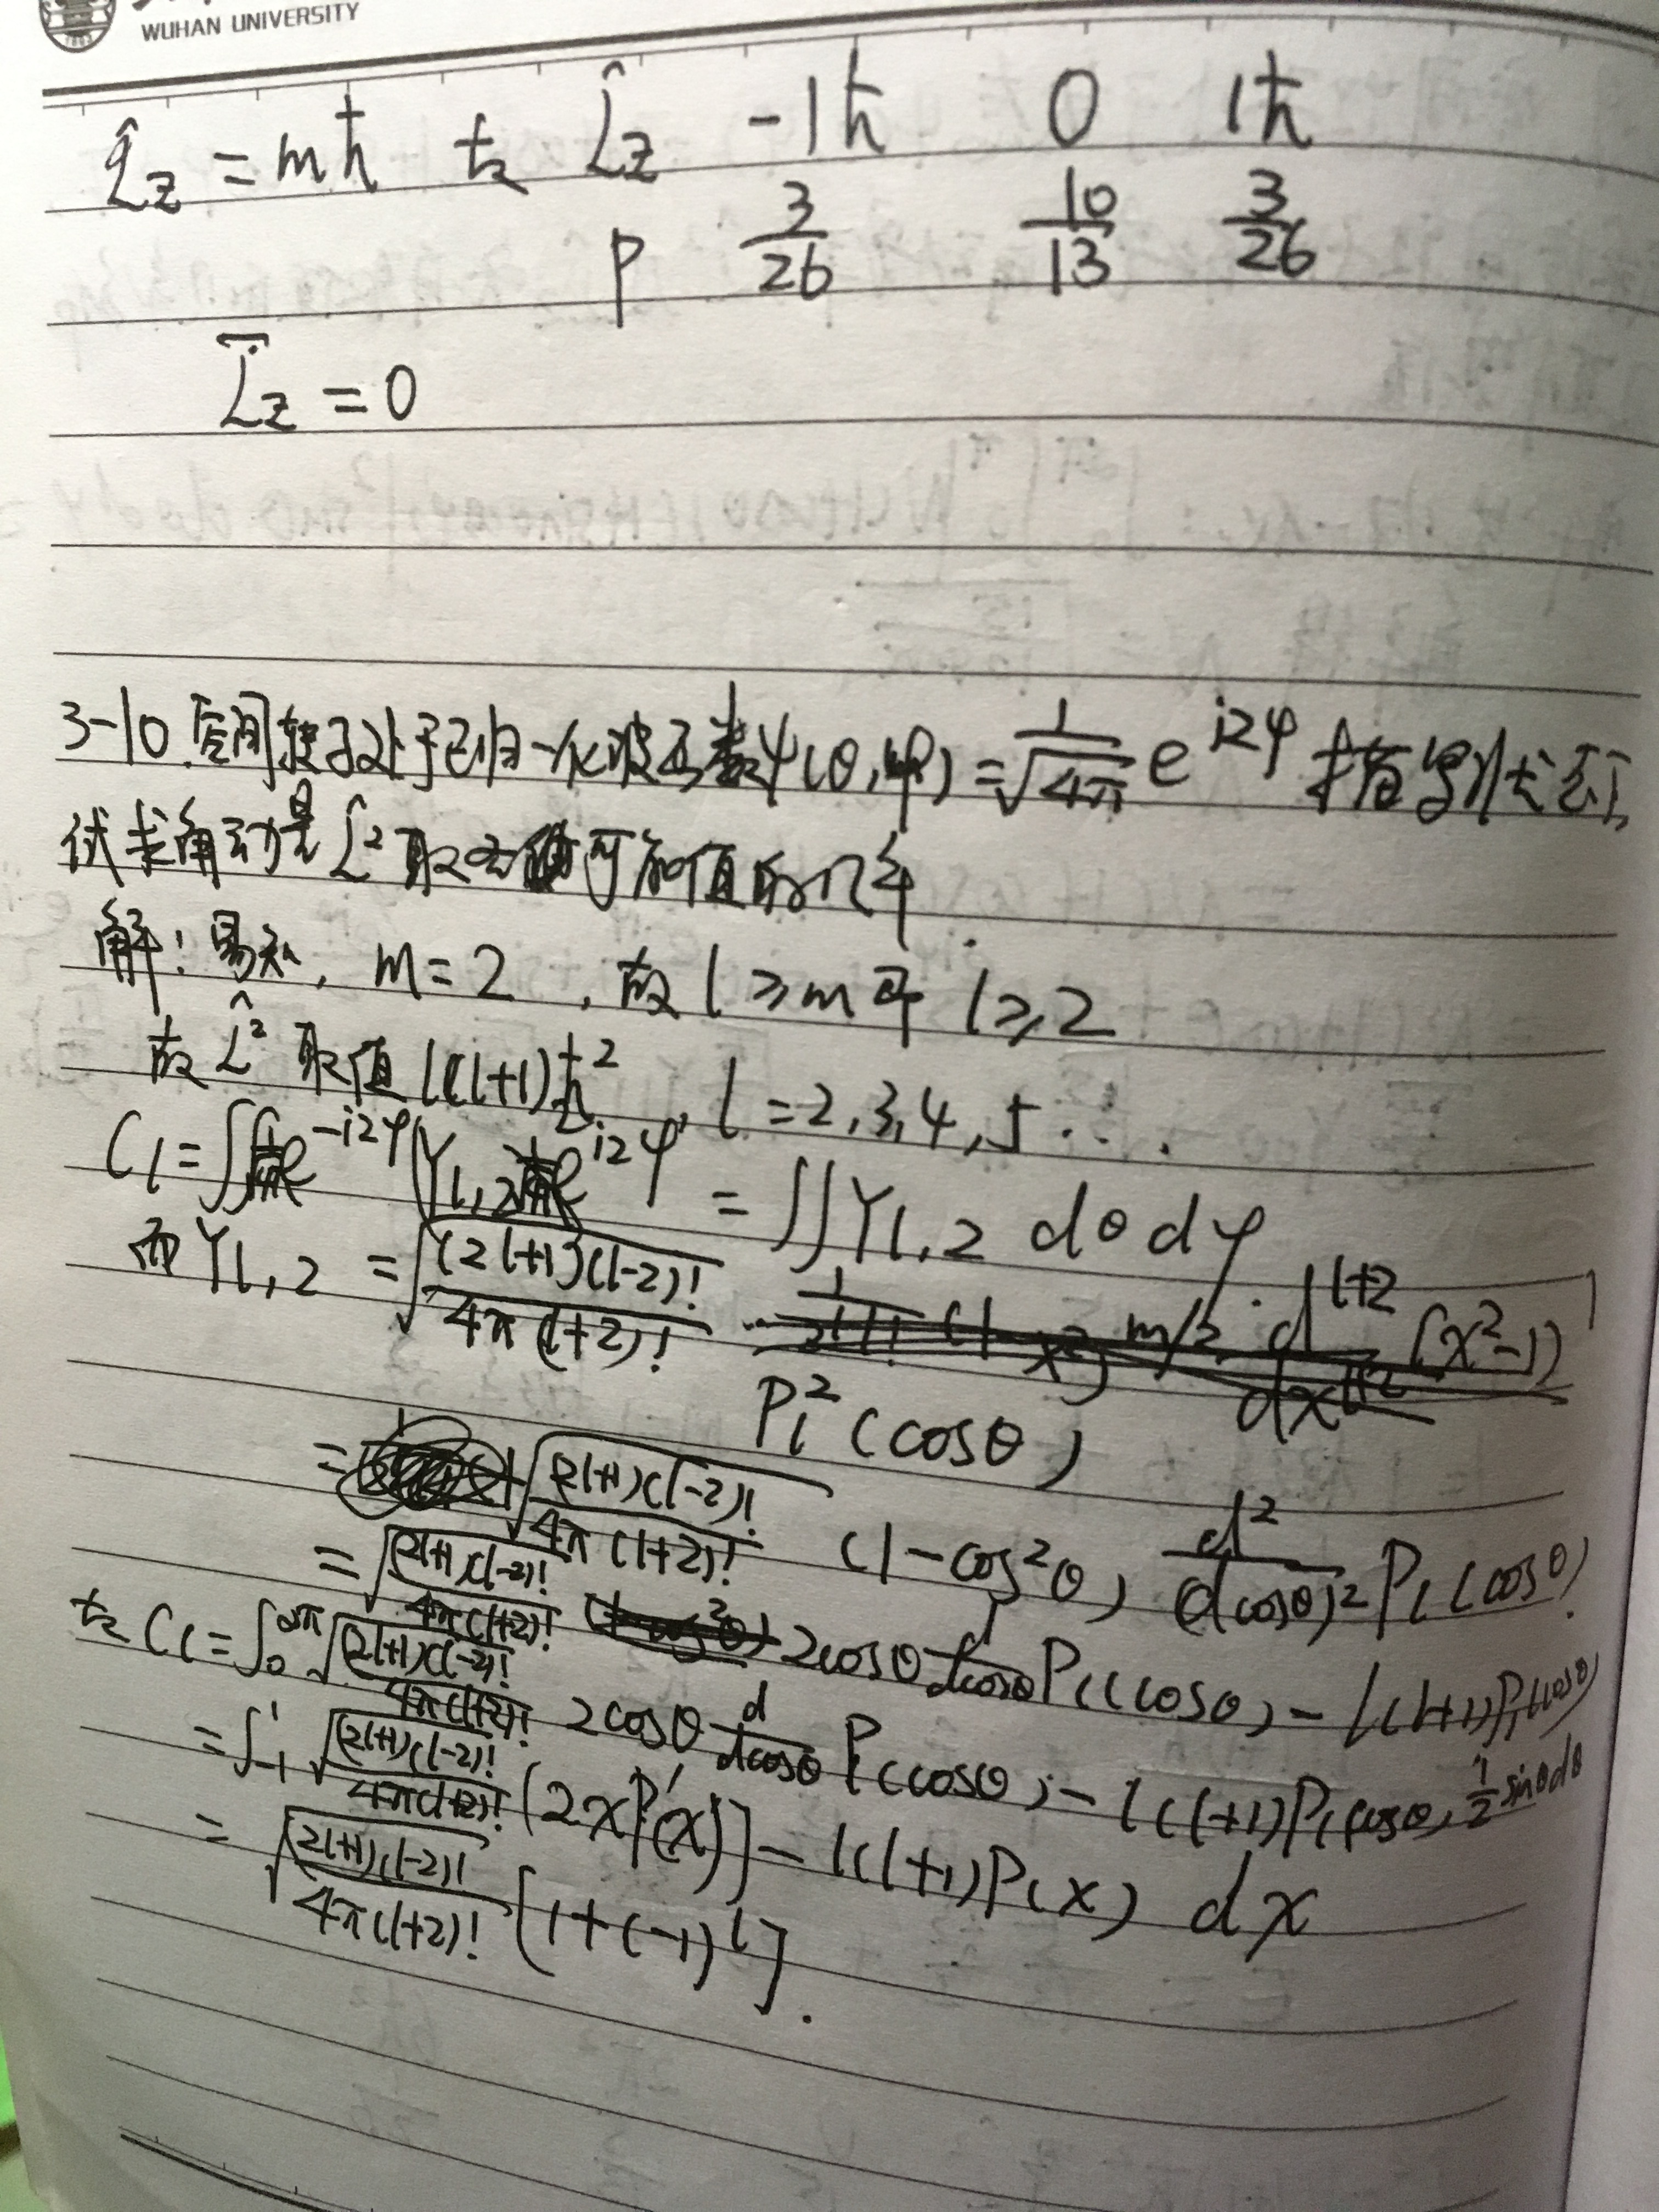 WUHAN UNIVERSITY
L̂z = mħ 故 L̂z -1ħ 0 1ħ
P 3/26 10/13 3/26
L̄z = 0
3-10. 空间转子处于已归一化波函数ψ(θ,φ) = 1/√4π e^{i2φ} 描写状态,
试求角动量 L̂² 取 可 值的几率.
解: 易知, m = 2 , 故 l ⩾ m 即 l ⩾ 2
故 L̂² 取值 l(l+1)ħ², l = 2,3,4,5 ...
Cl = ∬ e^{-i2φ} (Yl,2 e^{i2φ} = ∬ Yl,2 dθdφ
而 Yl,2 = √((2l+1)(l-2)!/4π(l+2)!)
Pl²(cosθ)
= √((2l+1)(l-2)!/4π(l+2)!) (1-cos²θ) d²/(dcosθ)² Pl(cosθ)
= √((2l+1)(l-2)!/4π(l+2)!) 2cosθ d/dcosθ Pl(cosθ) - l(l+1)Pl(cosθ)
故 Cl = ∫₀^{2π} √((2l+1)(l-2)!/4π(l+2)!) 2cosθ d/dcosθ Pl(cosθ) - l(l+1)Pl(cosθ) 1/2 sinθdθ
= ∫₋₁¹ √((2l+1)(l-2)!/4π(l+2)!) [2xP'(x)] - l(l+1)P(x) dx
= √((2l+1)(l-2)!/4π(l+2)!) [1+(-1)^l].